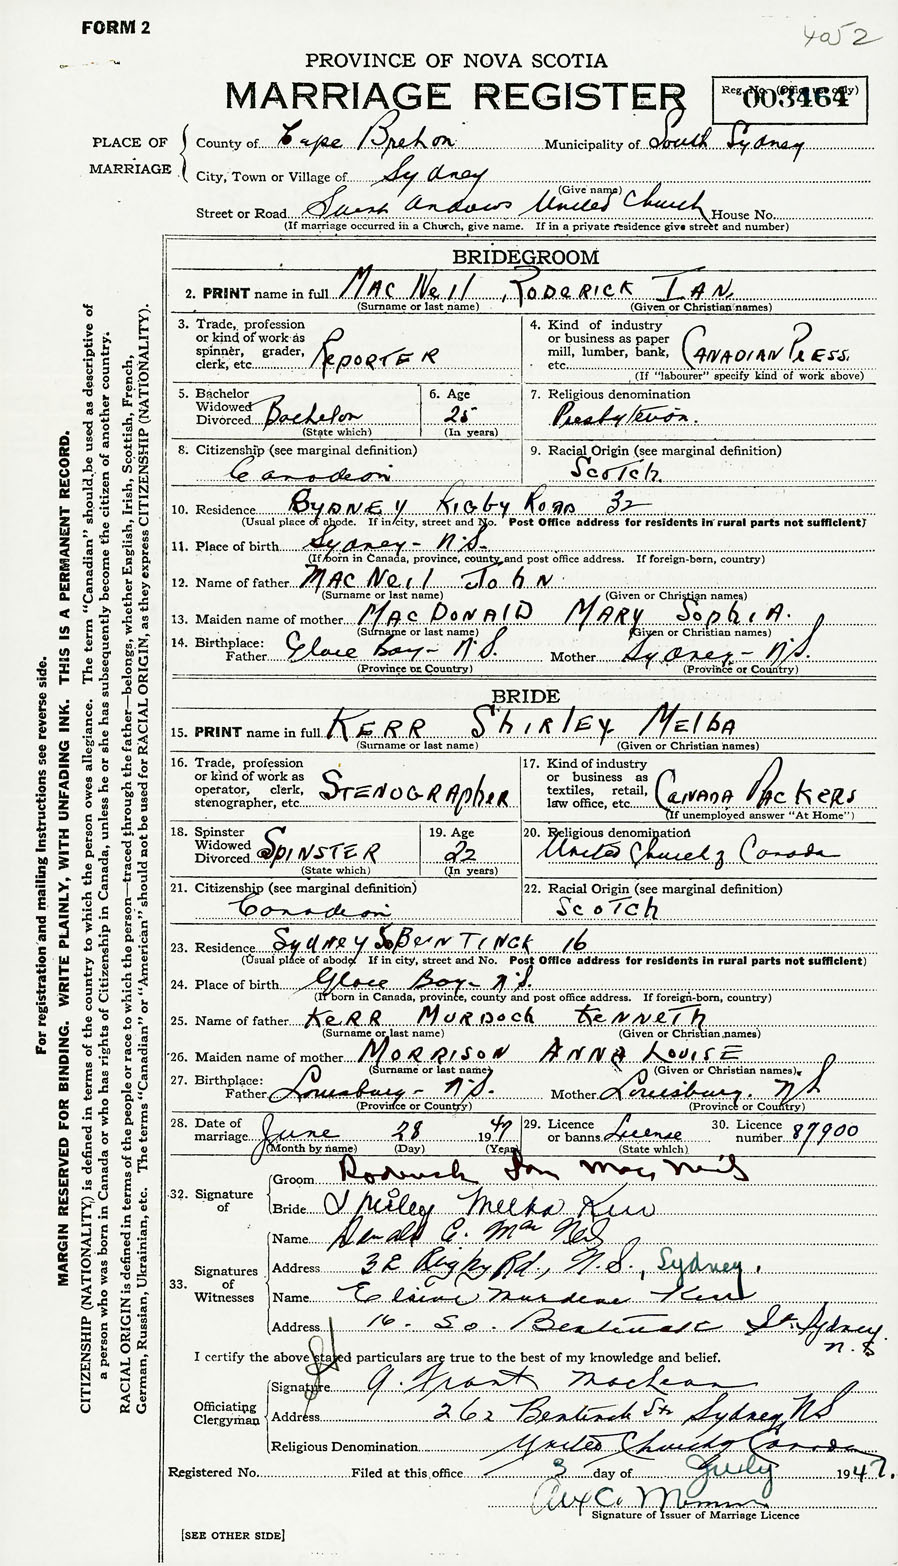 FORM 2
4052
PROVINCE OF NOVA SCOTIA
MARRIAGE REGISTER
Reg. No. (Office use only)
003464
PLACE OF MARRIAGE
County of Cape Breton Municipality of South Sydney
City, Town or Village of Sydney
(Give name)
Street or Road Saint Andrews United Church House No.
(If marriage occurred in a Church, give name. If in a private residence give street and number)
BRIDEGROOM
2. PRINT name in full MacNeil RODERICK IAN
(Surname or last name) (Given or Christian names)
3. Trade, profession or kind of work as spinner, grader, clerk, etc. REPORTER
4. Kind of industry or business as paper mill, lumber, bank, etc. CANADIAN PRESS.
(If "labourer" specify kind of work above)
5. Bachelor Widowed Divorced Bachelor
(State which)
6. Age 25
(In years)
7. Religious denomination
Presbyterian.
8. Citizenship (see marginal definition)
Canadian
9. Racial Origin (see marginal definition)
Scotch.
10. Residence SYDNEY RIGBY ROAD 32
(Usual place of abode. If in city, street and No. Post Office address for residents in rural parts not sufficient)
11. Place of birth Sydney - N.S.
(If born in Canada, province, county and post office address. If foreign-born, country)
12. Name of father MacNeil John
(Surname or last name) (Given or Christian names)
13. Maiden name of mother MacDONALD MARY SOPHIA.
(Surname or last name) (Given or Christian names)
14. Birthplace: Father Glace Bay - N.S. Mother Sydney - N.S.
(Province or Country) (Province or Country)
BRIDE
15. PRINT name in full KERR SHIRLEY MELBA
(Surname or last name) (Given or Christian names)
16. Trade, profession or kind of work as operator, clerk, stenographer, etc. STENOGRAPHER
17. Kind of industry or business as textiles, retail, law office, etc. CANADA PACKERS
(If unemployed answer "At Home")
18. Spinster Widowed Divorced SPINSTER
(State which)
19. Age 22
(In years)
20. Religious denomination
United Church of Canada
21. Citizenship (see marginal definition)
Canadian
22. Racial Origin (see marginal definition)
Scotch
23. Residence SYDNEY So BENTINCK 16
(Usual place of abode. If in city, street and No. Post Office address for residents in rural parts not sufficient)
24. Place of birth Glace Bay - N.S.
(If born in Canada, province, county and post office address. If foreign-born, country)
25. Name of father KERR MURDOCH KENNETH
(Surname or last name) (Given or Christian names)
26. Maiden name of mother MORRISON ANNA LOUISE
(Surname or last name) (Given or Christian names)
27. Birthplace: Father Louisburg - N.S. Mother Louisburg. N.S.
(Province or Country) (Province or Country)
28. Date of marriage June 28 1947
(Month by name) (Day) (Year)
29. Licence or banns License
(State which)
30. Licence number 87900
32. Signature of
Groom Roderick Ian MacNeil
Bride Shirley Melba Kerr
33. Signatures of Witnesses
Name Donald C. MacNeil
Address 32 Rigby Rd., N.S., Sydney.
Name Elaine Murdena Kerr
Address 16 - So. Bentinck St. Sydney. N.S
I certify the above stated particulars are true to the best of my knowledge and belief.
Officiating Clergyman
Signature A. Grant MacLean
Address 262 Bentinck St. Sydney, NS
Religious Denomination United Church of Canada
Registered No. Filed at this office 3 day of July 1947.
Alex C.
Signature of Issuer of Marriage Licence
[SEE OTHER SIDE]
For registration and mailing instructions see reverse side.
MARGIN RESERVED FOR BINDING. WRITE PLAINLY, WITH UNFADING INK. THIS IS A PERMANENT RECORD.
CITIZENSHIP (NATIONALITY) is defined in terms of the country to which the person owes allegiance. The term "Canadian" should be used as descriptive of
a person who was born in Canada or who has rights of Citizenship in Canada, unless he or she has subsequently become the citizen of another country.
RACIAL ORIGIN is defined in terms of the people or race to which the person—traced through the father—belongs, whether English, Irish, Scottish, French,
German, Russian, Ukrainian, etc. The terms "Canadian" or "American" should not be used for RACIAL ORIGIN, as they express CITIZENSHIP (NATIONALITY).